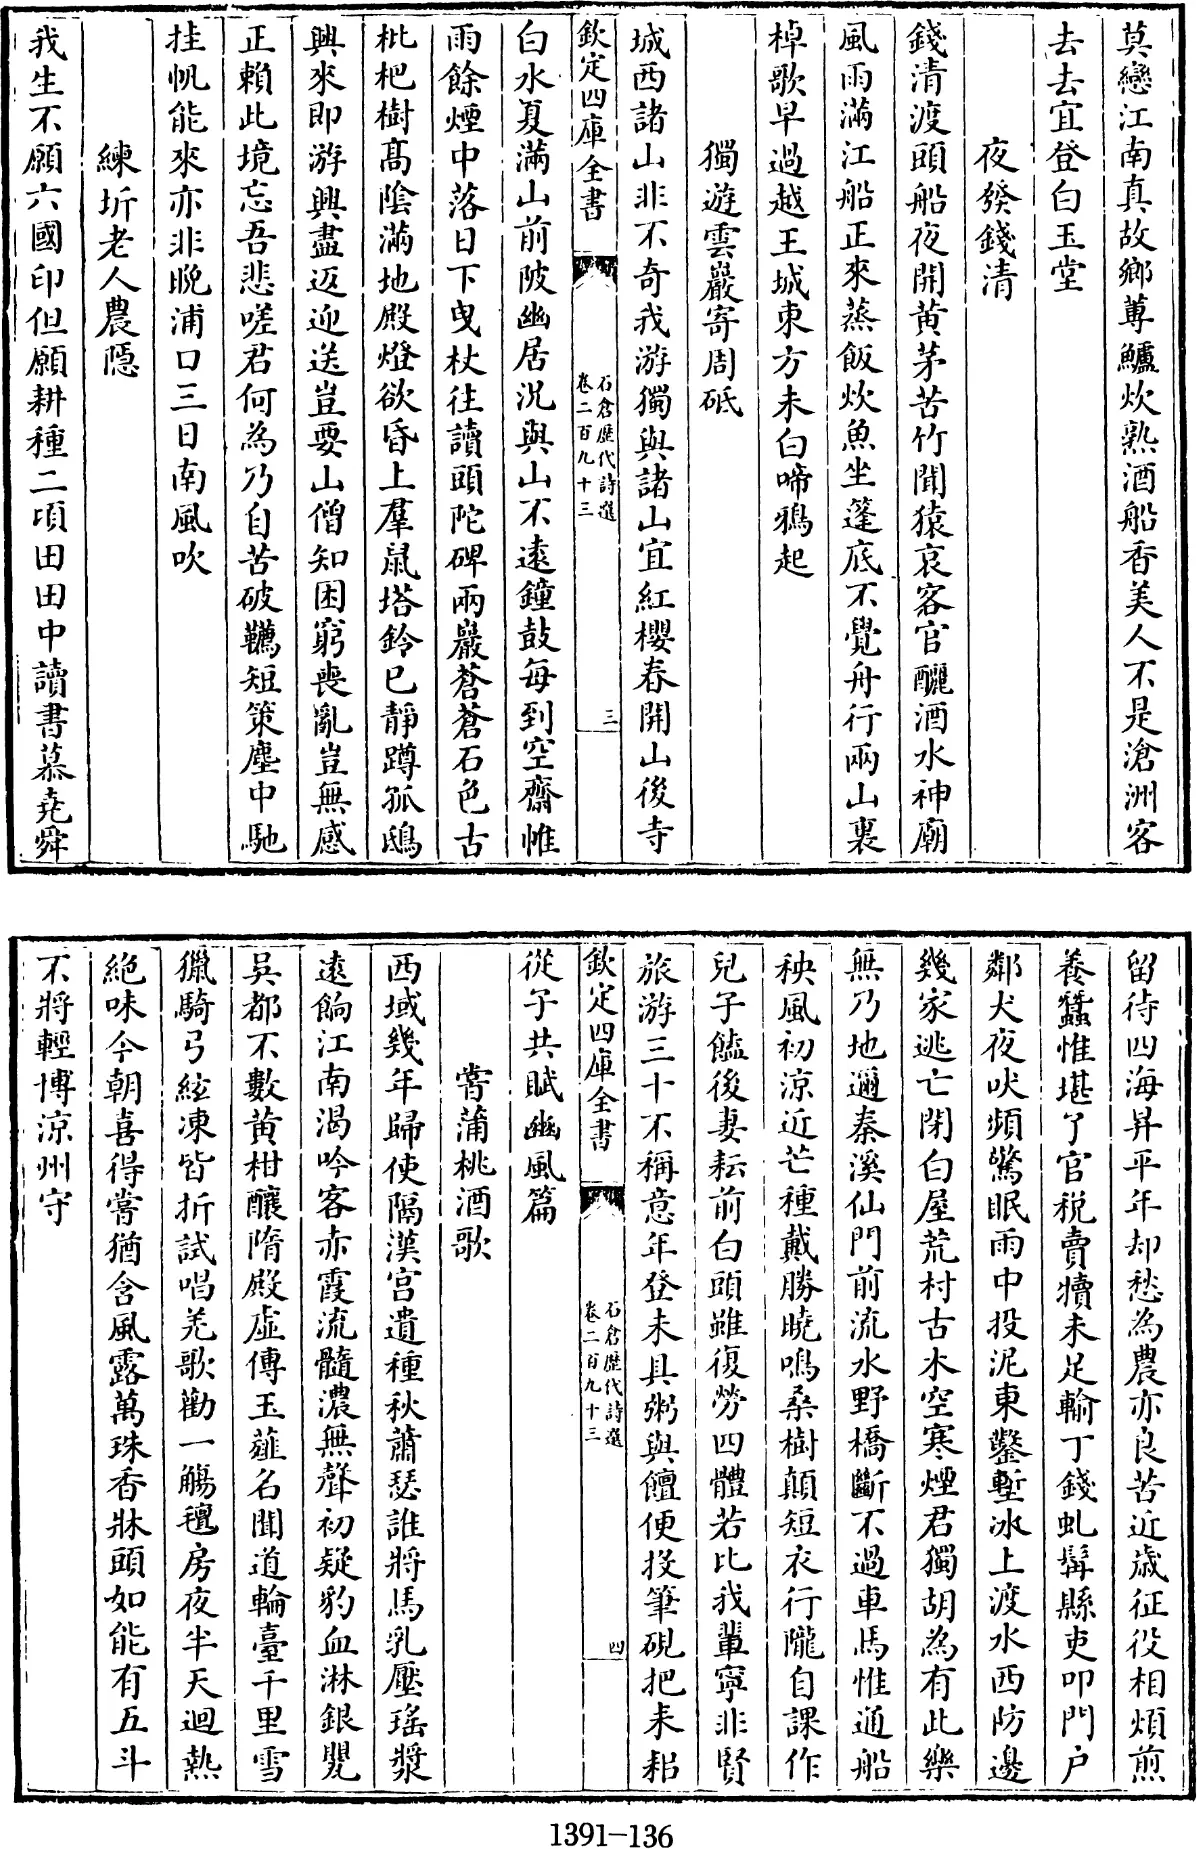 莫戀江南真故鄉蓴鱸炊熟酒船香美人不是滄洲客
去去宜登白玉堂
夜發錢清
錢清渡頭船夜開黄茅苦竹聞猿哀客官釃酒水神廟
風雨滿江船正來蒸飯炊魚坐篷底不覺舟行兩山裏
棹歌早過越王城東方未白啼鴉起
獨遊雲巖寄周砥
城西諸山非不奇我游獨與諸山宜紅櫻春開山後寺
欽定四庫全書
石倉歴代詩選
卷二百九十三
三
白水夏滿山前陂幽居況與山不遠鐘鼓每到空齋惟
雨餘煙中落日下曳杖往讀頭陀碑兩巖蒼蒼石色古
枇杷樹高陰滿地殿燈欲昏上羣鼠塔鈴已靜蹲孤鴟
興來即游興盡返迎送豈要山僧知困窮喪亂豈無感
正賴此境忘吾悲嗟君何為乃自苦破韉短策塵中馳
挂帆能來亦非晚浦口三日南風吹
練圻老人農隱
我生不願六國印但願耕種二頃田田中讀書慕堯舜
留待四海昇平年却愁為農亦良苦近歲征役相煩煎
養蠶惟堪了官税賣犢未足輸丁錢虬髯縣吏叩門户
鄰犬夜吠頻驚眠雨中投泥東鑿塹冰上渡水西防邊
幾家逃亡閉白屋荒村古木空寒煙君獨胡為有此樂
無乃地邇秦溪仙門前流水野橋斷不過車馬惟通船
秧風初凉近芒種戴勝曉鳴桑樹顛短衣行隴自課作
兒子饁後妻耘前白頭雖復勞四體若比我輩寧非賢
旅游三十不稱意年登未具粥與饘便投筆硯把耒耜
欽定四庫全書
石倉歴代詩選
卷二百九十三
四
從子共賦豳風篇
嘗蒲桃酒歌
西域幾年歸使隔漢宮遺種秋蕭瑟誰將馬乳壓瑤漿
遠餉江南渴吟客赤霞流髓濃無聲初疑豹血淋銀甖
吳都不數黄柑釀隋殿虛傳玉薤名聞道輪臺千里雪
獵騎弓絃凍皆折試唱羌歌勸一觴氊房夜半天迴熱
絶味今朝喜得嘗猶含風露萬珠香牀頭如能有五斗
不將輕博涼州守
1391-136